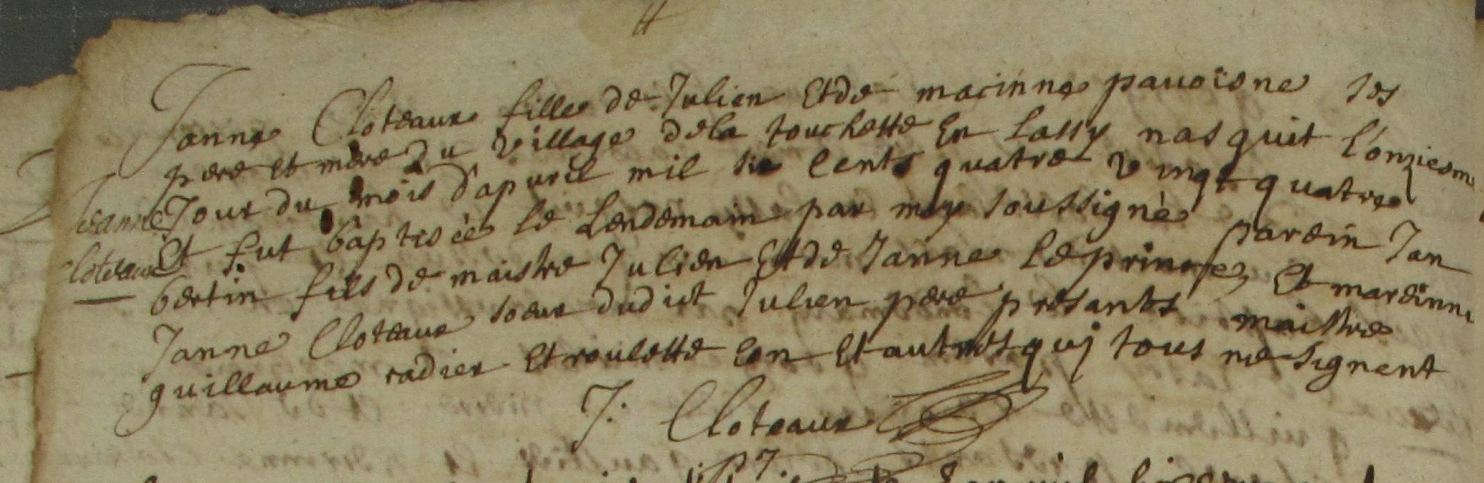 Janne Cloteaux fille de Julien Et de macinne pavoisne ses
pere et mere du village de la touchette En Lassy nasquit L'onziesme
Jour du mois d'apvril mil six Cents quatre vingt quatre
Et fut baptisèe le Lendemain par moy soussignè parein Jan
bertin fils de maistre Julien Et de Janne Le prince, Et mareinne
Janne Cloteaux soeur dudict Julien pere presants maistre
guillaume radier Et roulette Et autres quj tous ne signent
Jeanne
Cloteaux
J: Cloteaux